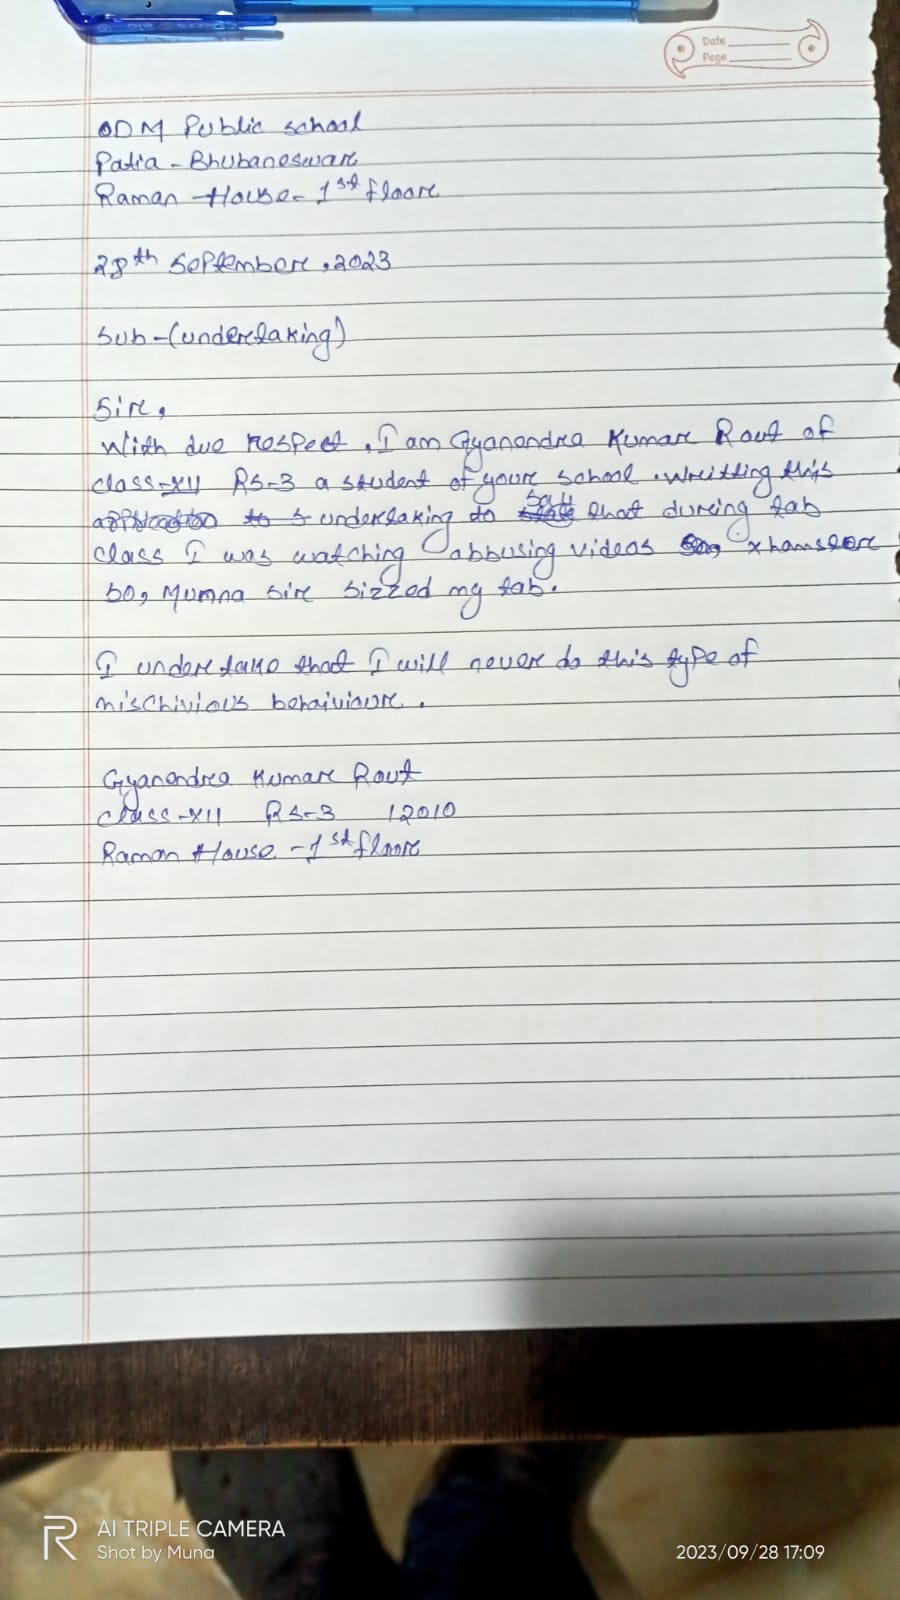 Date
Page
ODM Public school
Patia - Bhubaneswar
Raman -House- 1st floore
28th Septembere, 2023
Sub-(undertaking)
Sire,
With due respect, I am Gyanendra Kumar Rout of
class-XII RS-3 a student of youre school. Writting this
undertaking to that during tab
class I was watching abbusing videos xhamster
so, Munna sire sizzed my tab.
I undertake that I will never do this type of
mischivious behaiviore.
Gyanendra Kumar Rout
class-XII RS-3 12010
Raman House - 1st floore
AI TRIPLE CAMERA
Shot by Muna
2023/09/28 17:09